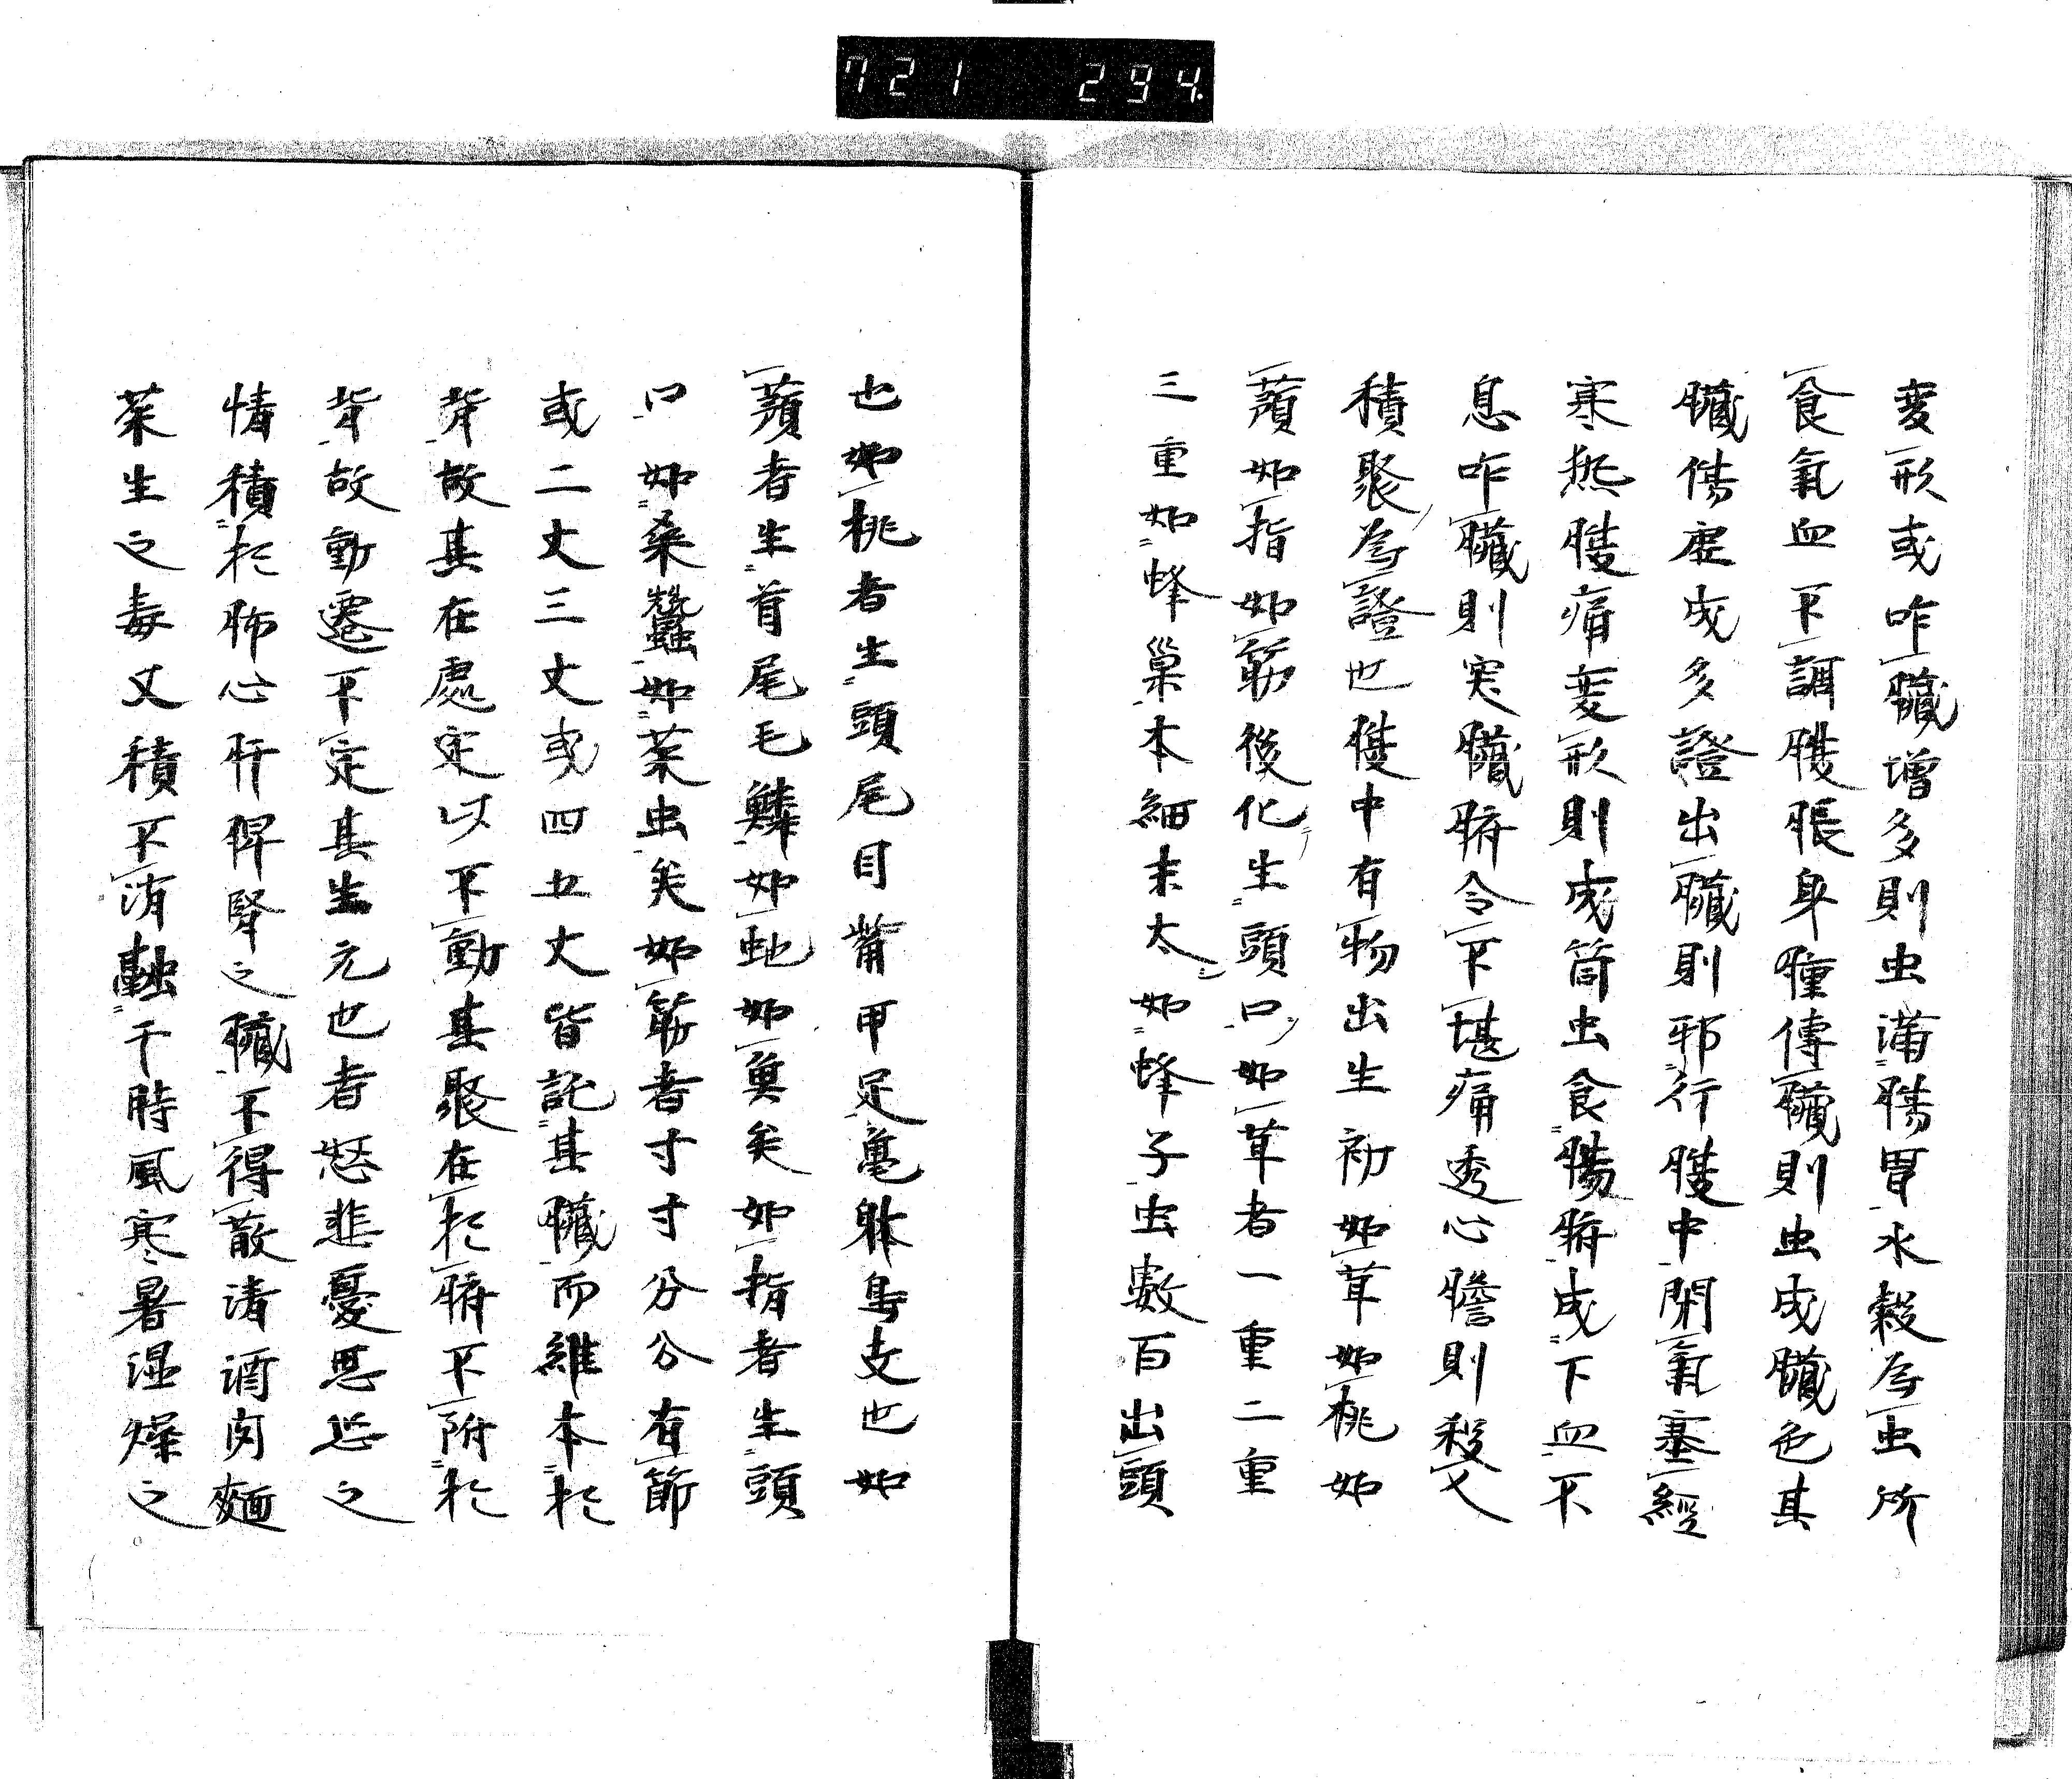 721 294.
変形或咋臓増多則虫満腸胃水穀為虫所
食氣血不調腹脹身腫傳臓則虫成臓色其
臓傷虚成多證出臓則邪行腹中閉氣塞經
寒热腹痛変形則成筒虫食腸腑成下血不
息咋臓則寒臓腑令不堪痛透心膽則殺又
積聚為證也腹中有物出生初如茸如桃如
蘋如指如筋後化生頭口如茸者一重二重
三重如蜂巢本細末太如蜂子虫数百出頭
也如桃者生頭尾目觜甲足亀躰鳥支也如
蘋者生首尾毛鱗如虵如魚矣如指者生頭
口如桑蠶如菜虫矣如筋者寸寸分分有節
或二丈三丈或四五丈皆託其臓而維本於
背故其在處定以不動其聚在於腑不附於
背故動遷不定其生元也者怒悲憂思恐之
情積於肺心肝脾腎之臓不得散清酒肉麺
菜生之毒又積不消融干時風寒暑湿燥之